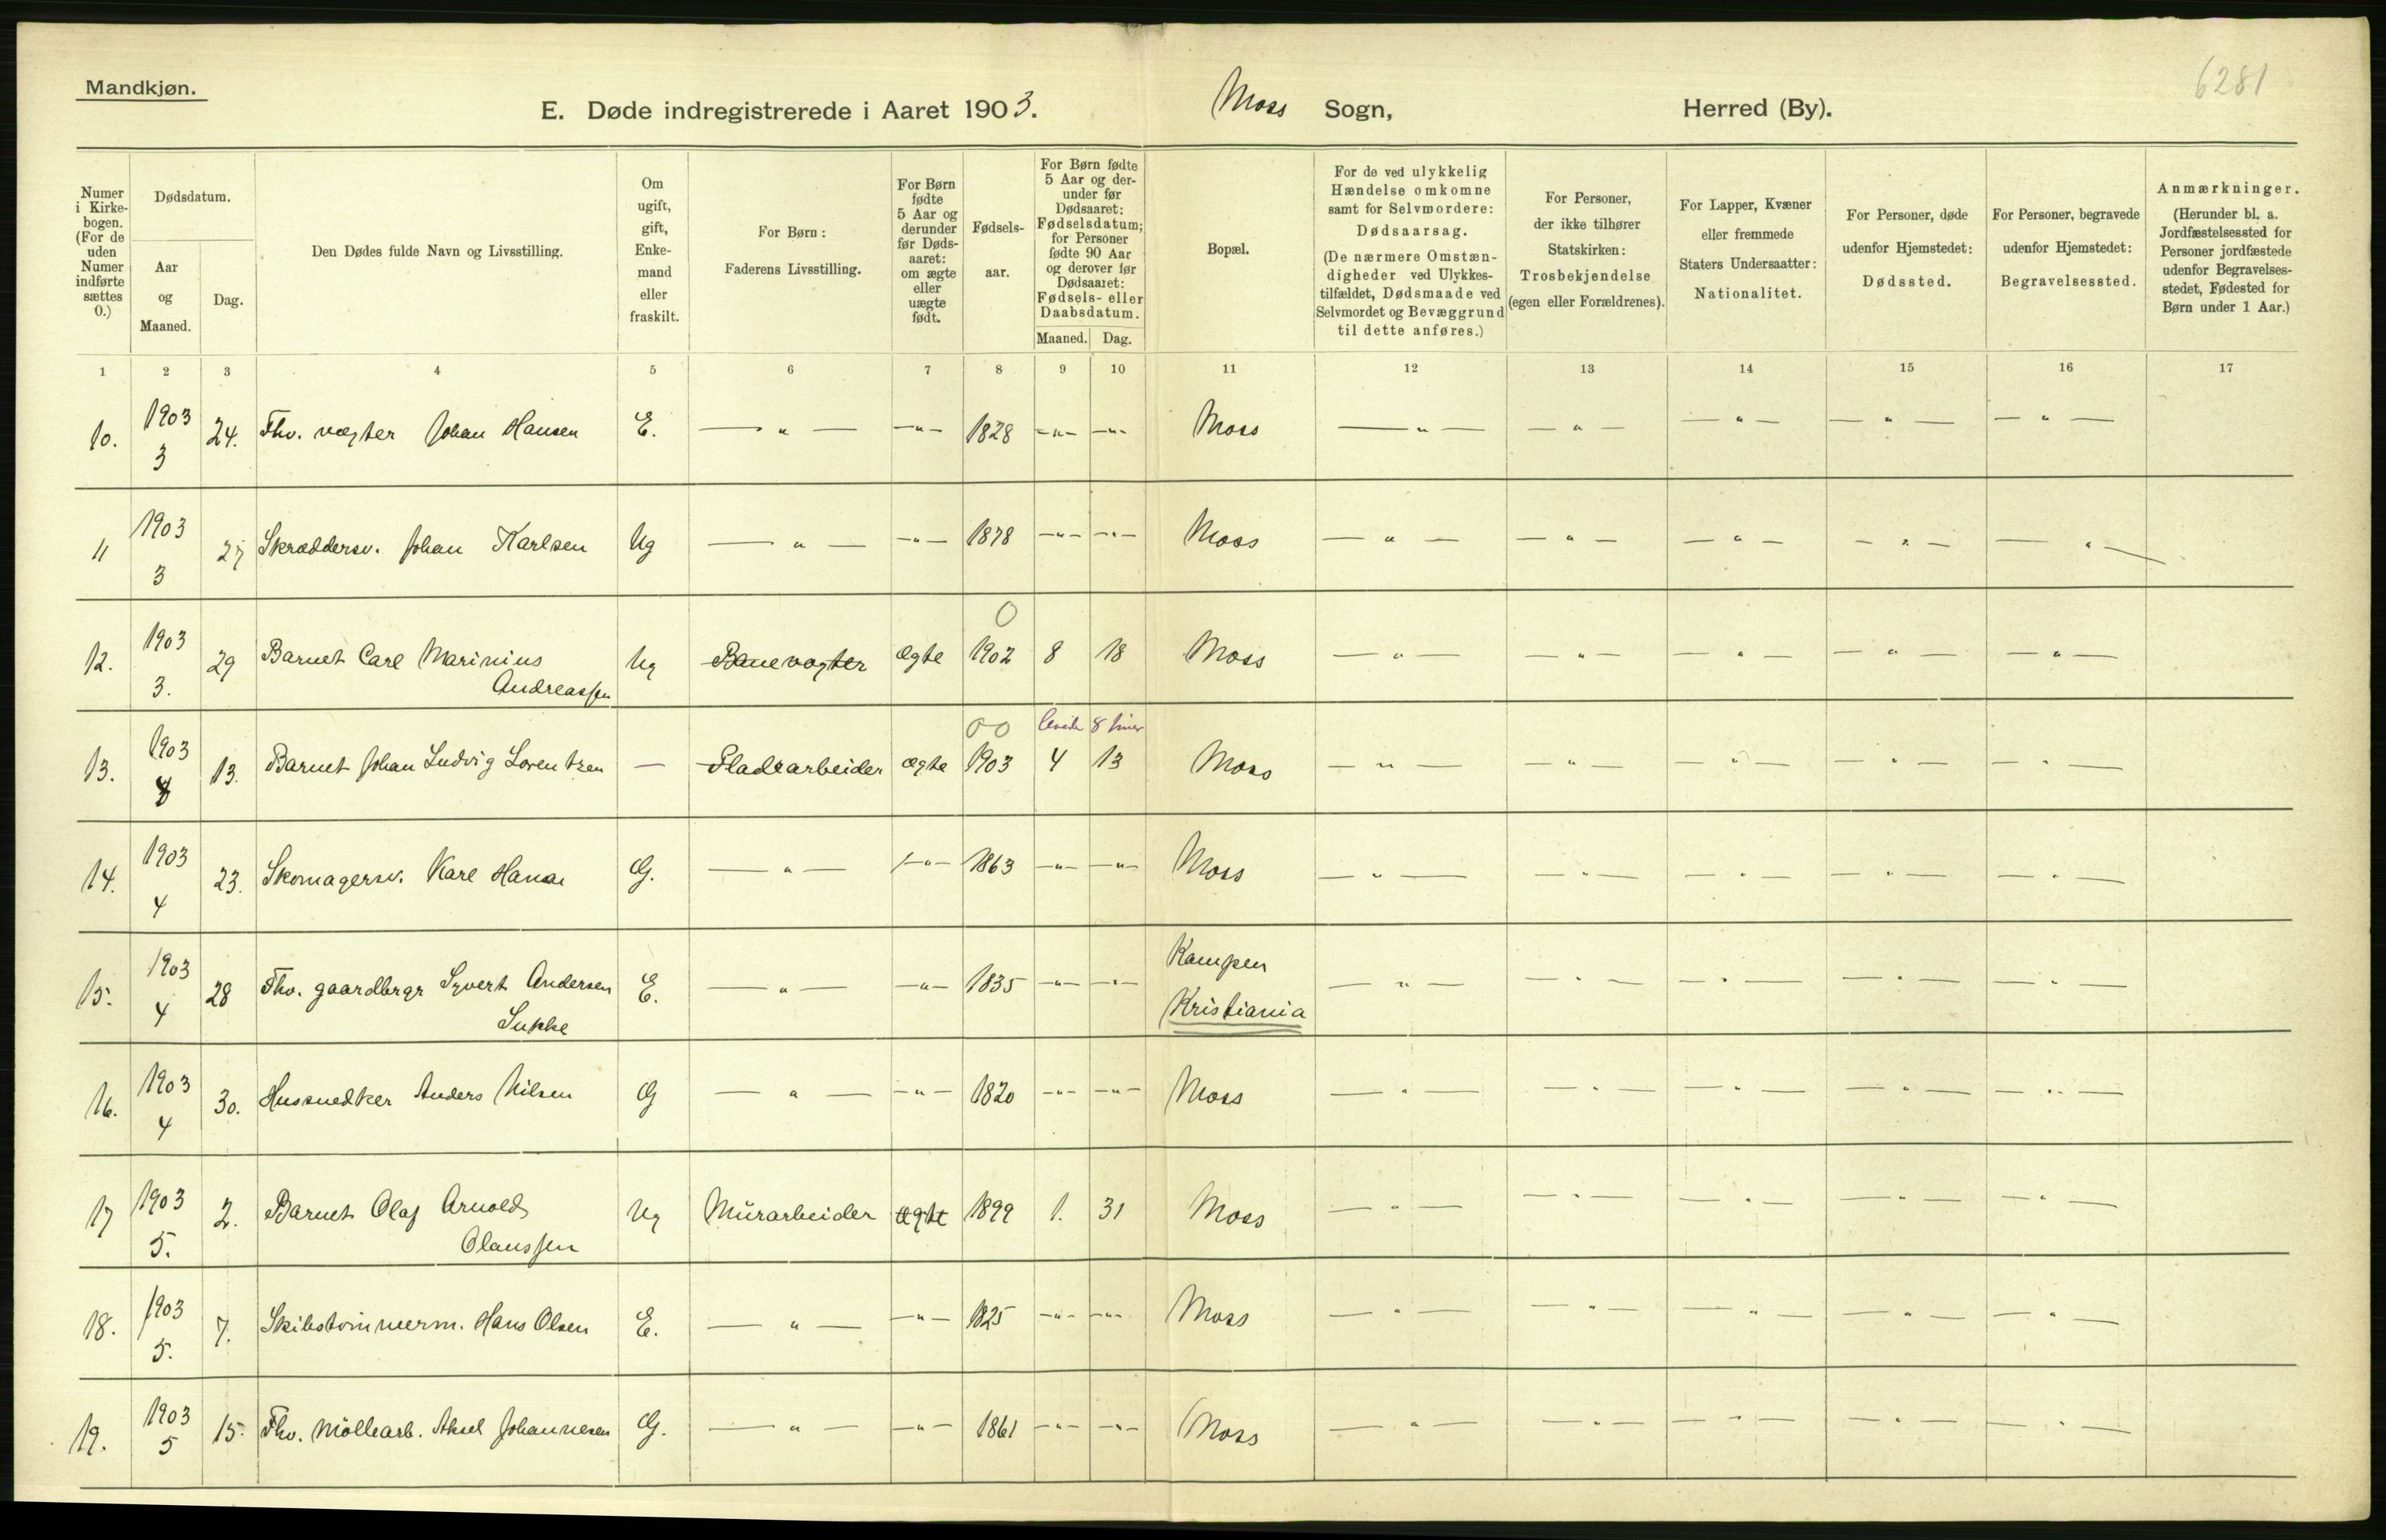 Mandkjøn.
6281
E. Døde indregistrerede i Aaret 1903. Moss Sogn, Herred (By).
Numer i Kirke-bogen. (For de uden Numer indførte sættes 0.)
Dødsdatum.
Aar og Maaned.
Dag.
Den Dødes fulde Navn og Livsstilling.
Om ugift, gift, Enke-mand eller fraskilt.
For Børn: Faderens Livsstilling.
For Børn fødte 5 Aar og derunder før Døds-aaret: om ægte eller uægte født.
Fødsels-aar.
For Børn fødte 5 Aar og der-under før Dødsaaret: Fødselsdatum; for Personer fødte 90 Aar og derover før Dødsaaret: Fødsels- eller Daabsdatum.
Maaned. Dag.
Bopæl.
For de ved ulykkelig Hændelse omkomne samt for Selvmordere: Dødsaarsag. (De nærmere Omstæn-digheder ved Ulykkes-tilfældet, Dødsmaade ved Selvmordet og Bevæggrund til dette anføres.)
For Personer, der ikke tilhører Statskirken: Trosbekjendelse (egen eller Forældrenes).
For Lapper, Kvæner eller fremmede Staters Undersaatter: Nationalitet.
For Personer, døde udenfor Hjemstedet: Dødssted.
For Personer, begravede udenfor Hjemstedet: Begravelsessted.
Anmærkninger. (Herunder bl. a. Jordfæstelsessted for Personer jordfæstede udenfor Begravelses-stedet, Fødested for Børn under 1 Aar.)
1 2 3 4 5 6 7 8 9 10 11 12 13 14 15 16 17
10. 1903 3 24. Fhv. vægter Johan Hansen E. — " — — " — 1828 — " — — " — Moss — " — — " — — " — — " — — " —
11 1903 3 27 Skræddersv. Johan Karlsen Ug — " — — " — 1878 — " — — " — Moss — " — — " — — " — — " — — " —
0
12. 1903 3. 29 Barnet Carl Marinius Andreassen Ug Banevogter ægte 1902 8 18 Moss — " — — " — — " — — " — — " —
00 levede 8 timer
13. 1903 4 13. Barnet Johan Ludvig Lorentzen — Pladsarbeider ægte 1903 4 13 Moss — " — — " — — " — — " — — " —
14. 1903 4 23. Skomagersv. Karl Hansen G. — " — — " — 1863 — " — — " — Moss — " — — " — — " — — " — — " —
15. 1903 4 28 Fhv. gaardbrgr Syvert Andersen Sukke E. — " — — " — 1835 — " — — " — Kampen Kristiania — " — — " — — " — — " — — " —
16. 1903 4 30. Hussnedker Anders Nilsen G — " — — " — 1820 — " — — " — Moss — " — — " — — " — — " — — " —
17 1903 5. 2. Barnet Olaf Arnold Olaussen Ug Murarbeider ægte 1899 1. 31 Moss — " — — " — — " — — " — — " —
18. 1903 5. 7. Skibstømmerm. Hans Olsen E. — " — — " — 1825 — " — — " — Moss — " — — " — — " — — " — — " —
19. 1903 5 15. Fhv. Møllearb. Aksel Johannesen G. — " — — " — 1861 — " — — " — Moss — " — — " — — " — — " — — " —